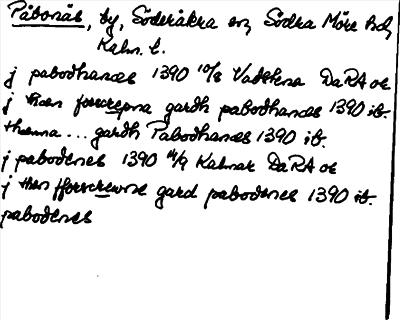 Påbonäs, by, Söderåkra sn, Södra Möre hd,
Kalm. l.
j pabodhanæs 1390 10/8 Vadstena DaRA or
j thæn forscrepna gardh pabodhanæs 1390 ib.
thenna ... gardh Pabodhanæs 1390 ib.
j pabodenes 1390 /9 Kalmar DaRA or
j then fforscrewne gard pabodenes 1390 ib.
pabodenes